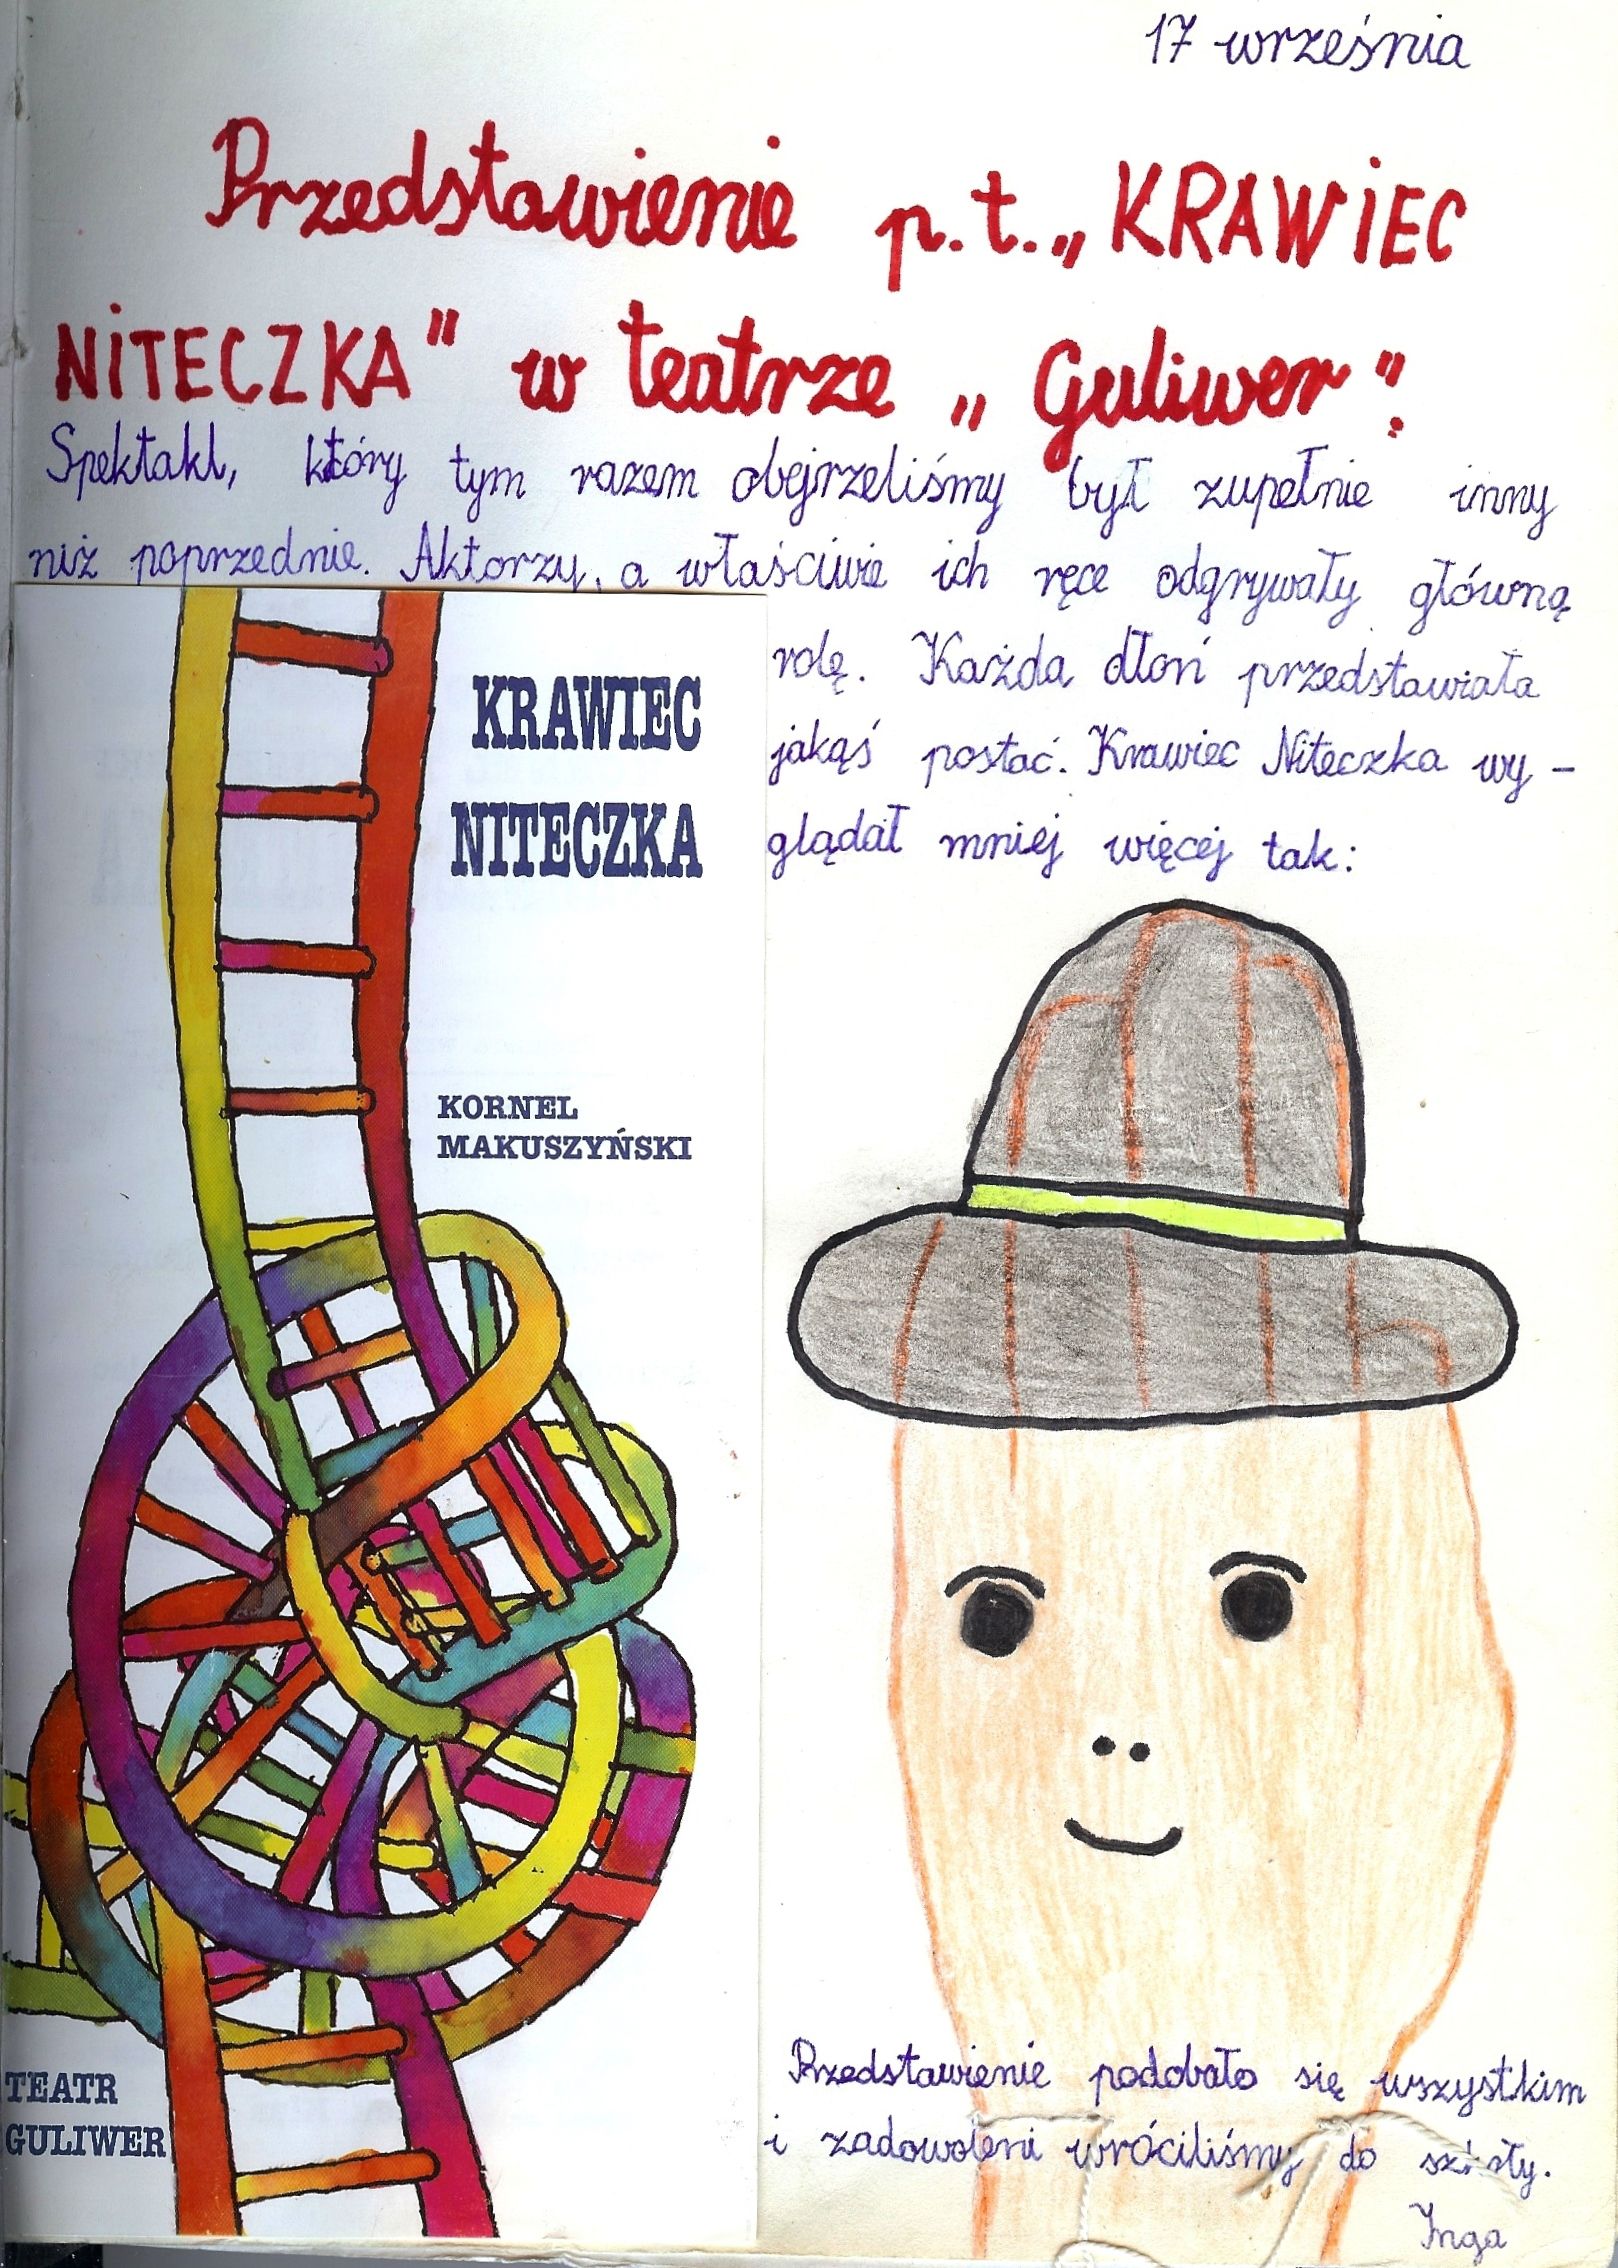 17 września
Przedstawienie p.t. „KRAWIEC
NITECZKA" w teatrze „Guliwer".
Spektakl, który tym razem obejrzeliśmy był zupełnie inny
niż poprzednie. Aktorzy, a właściwie ich ręce odgrywały główną
rolę. Każda dłoń przedstawiała
jakąś postać. Krawiec Niteczka wy-
glądał mniej więcej tak:
KRAWIEC
NITECZKA
KORNEL
MAKUSZYŃSKI
TEATR
GULIWER
Przedstawienie podobało się wszystkim
i zadowoleni wróciliśmy do szkoły.
Inga